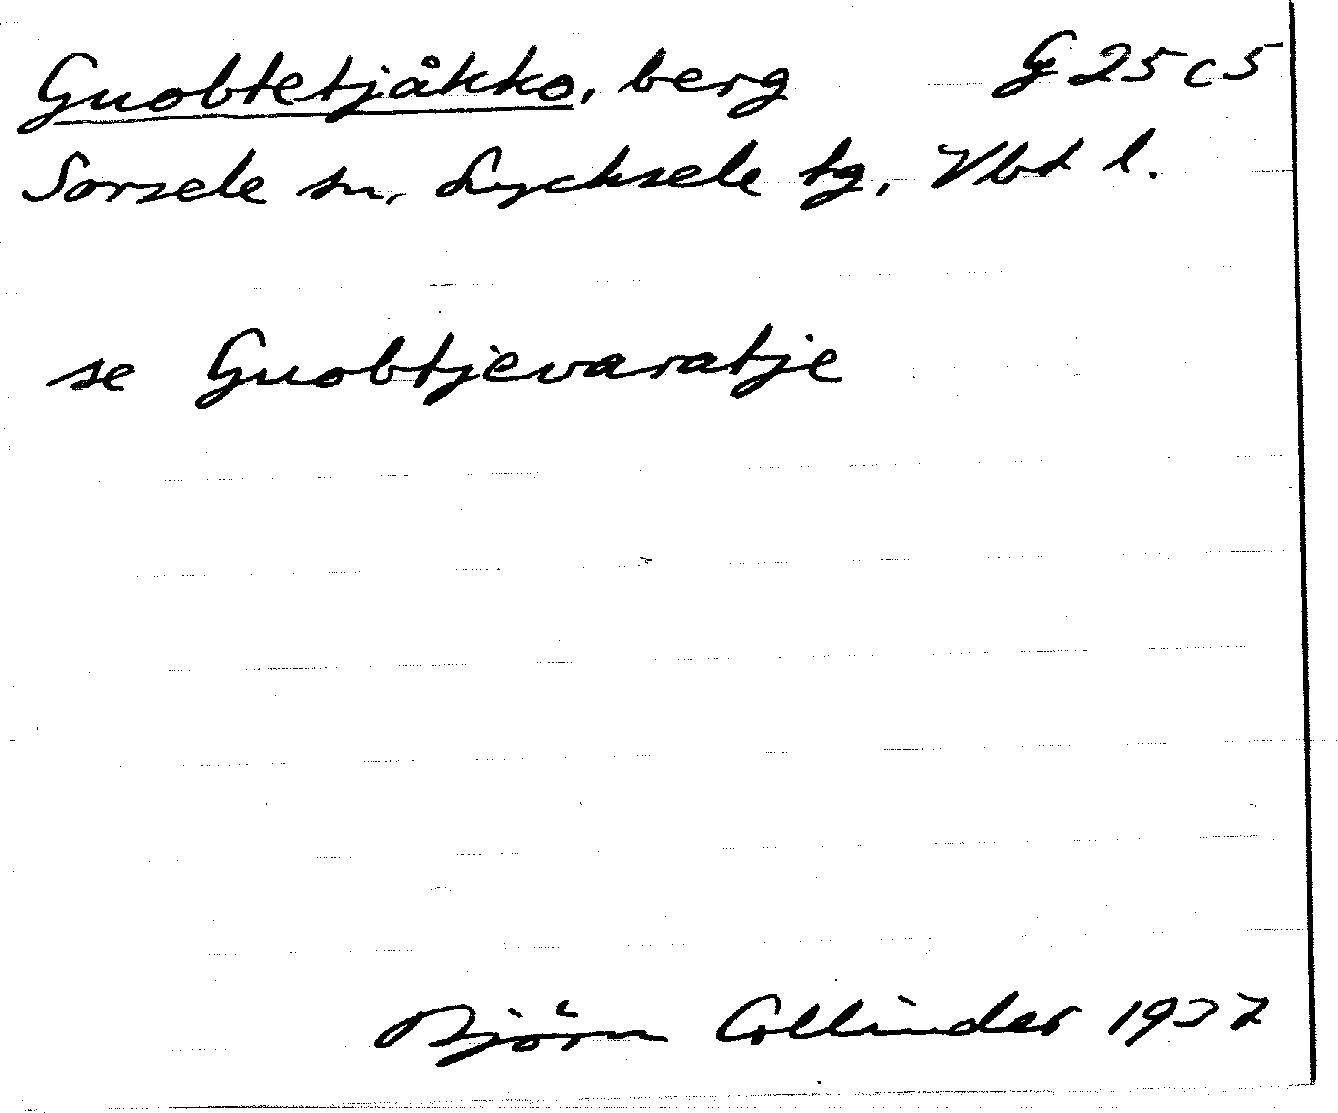 Guobtetjåkko, berg G 25 c 5
Sorsele sn, Lycksele tg, Vbt l.
se Guobtjevaratje
Björn Collinder 1937